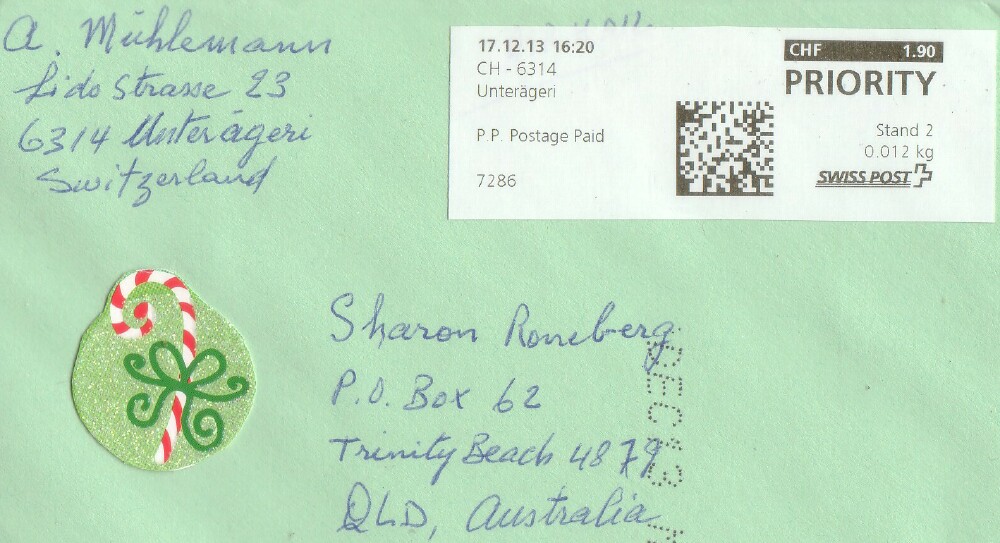 A. Mühlemann
Lido Strasse 23
6314 Unterägeri
Switzerland
17.12.13 16:20
CH - 6314
Unterägeri
P.P. Postage Paid
7286
CHF 1.90
PRIORITY
Stand 2
0.012 kg
SWISS POST
Sharon Roneberg
P.O. Box 62
Trinity Beach 4879
QLD, Australia
DEC 13